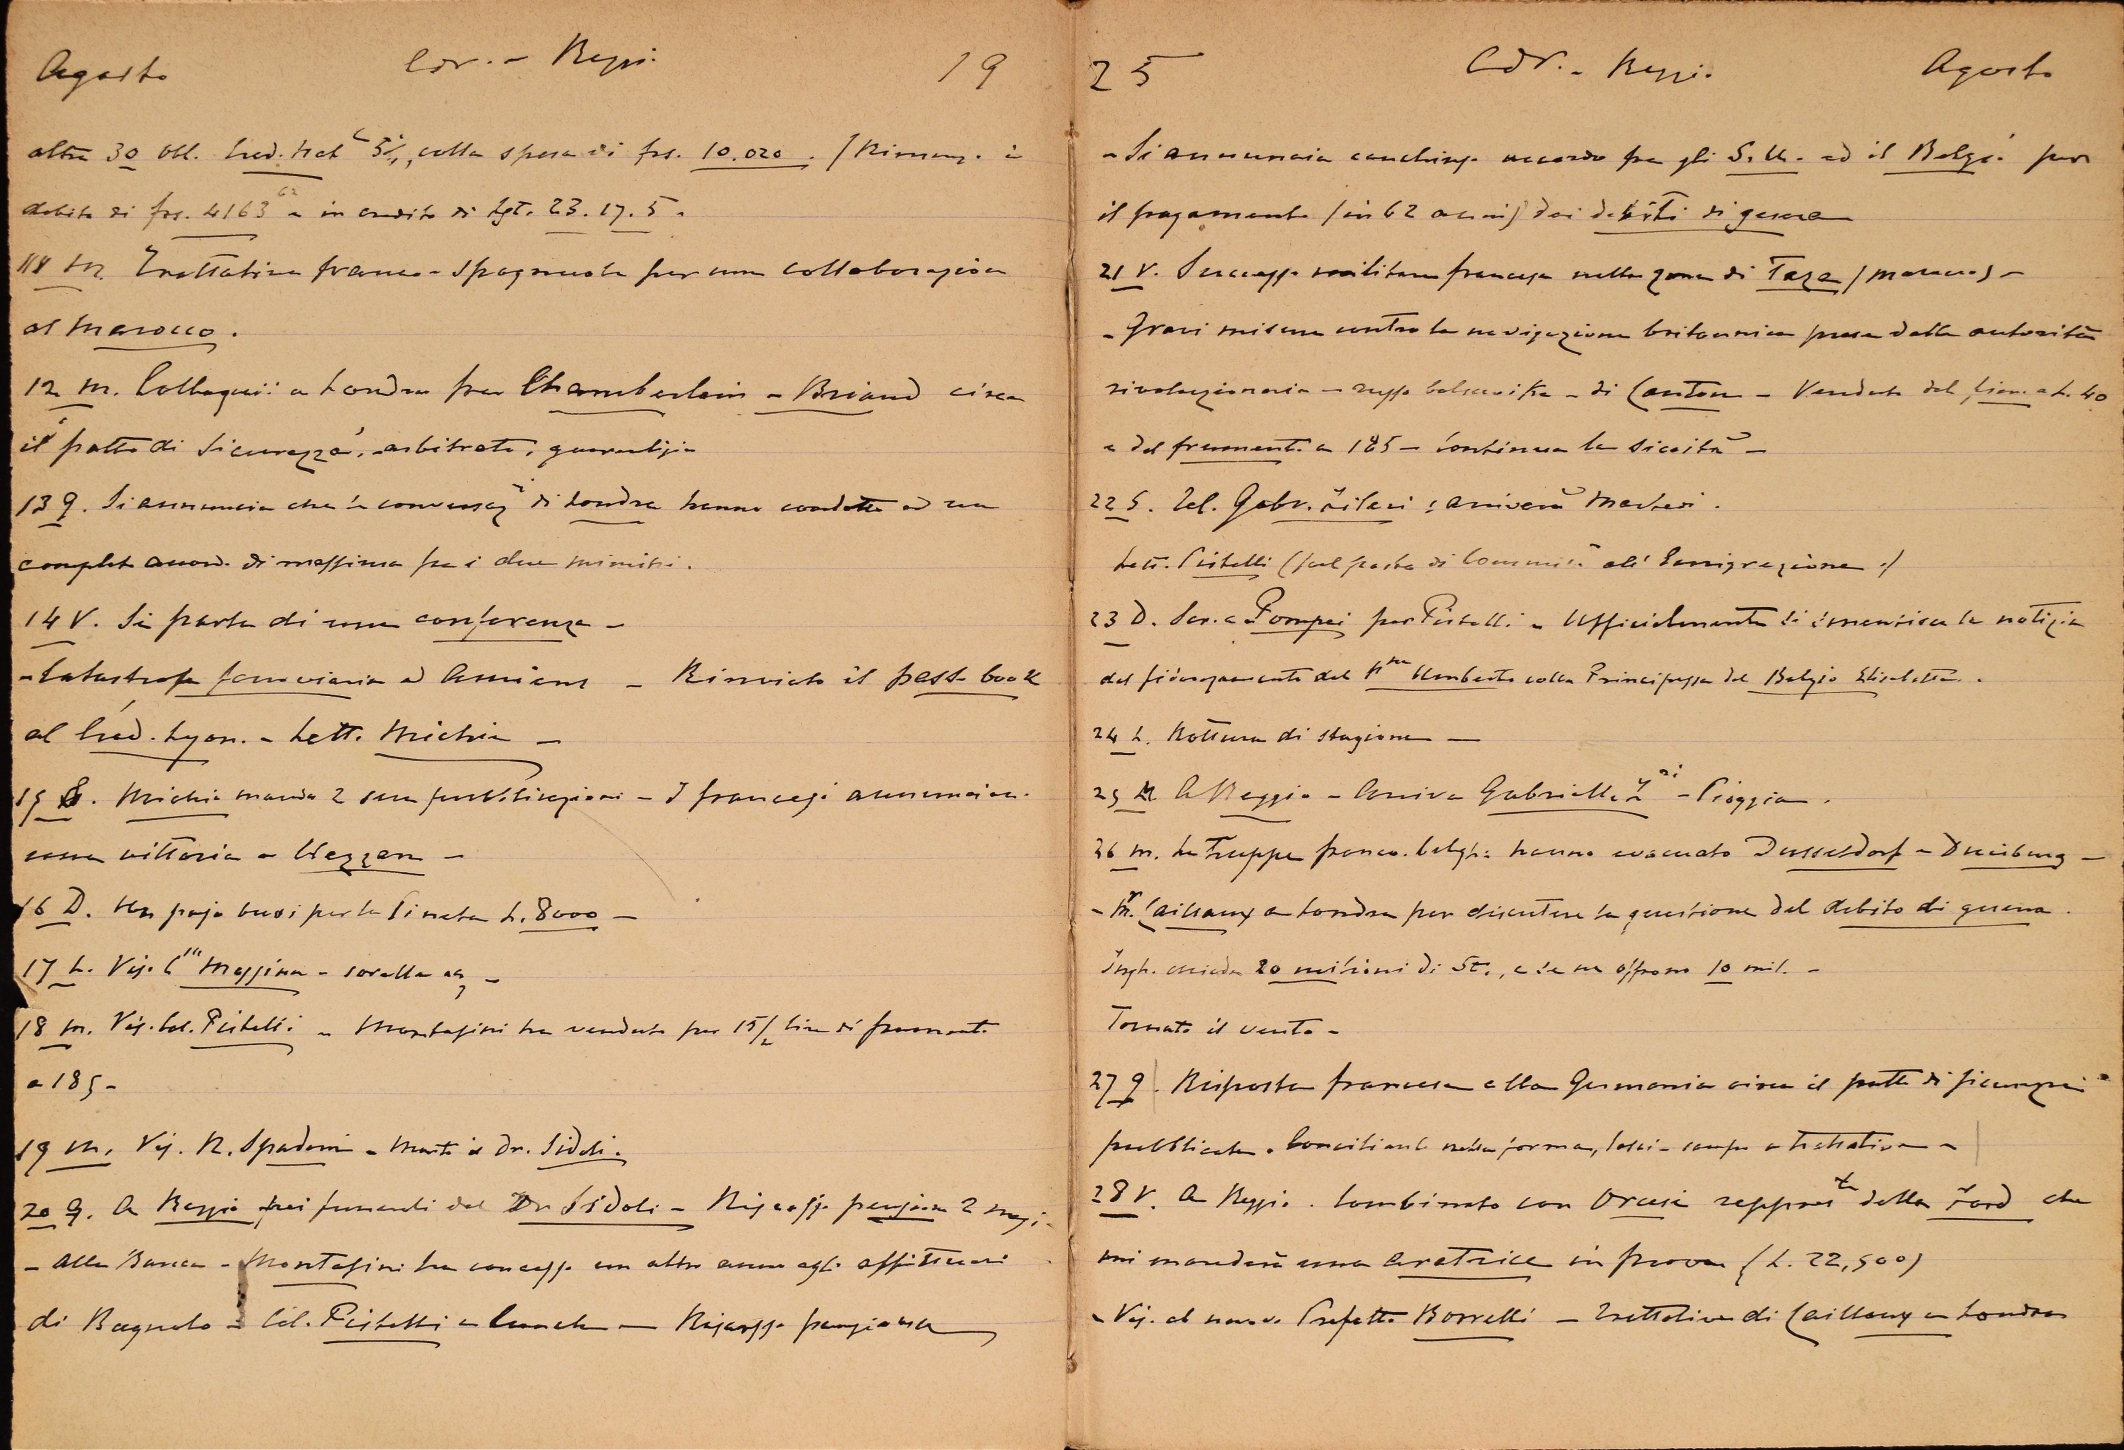 Agosto Cdr. - Reggi. 19
altre 30 obl. Cred. 5%, colla spesa di frs. 10.020. (Rimang. in
debito di frs. 4163 62 e in credito di Lgt. 23.17.5.
11 M. Trattative franco-spagnuole per una collaborazione
al Marocco.
12 M. Colloqui a Londra fra Chamberlain - Briand circa
il patto di sicurezza, arbitrato, guarentigia
13 G. Si annuncia che le conversaz.i di Londra hanno condotto ad un
completo accordo di massima fra i due ministri.
14 V. Si parla di una conferenza -
- Catastrofe ferroviaria ad Amiens - Rinviato il pass book
al Créd. Lyon. - Lett. Michia -
15 S. Michia manda 2 sue pubblicazioni - I francesi annunciano
una vittoria a Uezzan -
16 D. Un pajo buoi per la Pineta L. 8000 -
17 L. Vis. Messina - sorella
18 M. Vis. Col. Pistelli - Montasini ha venduto per 15/ di frumento
a 185 -
19 M. Vis. N. Spadoni - Morto il Dr. Sidoli.
20 G. A Reggio pei funerali del Dr. Sidoli - Riscosso pensione 2 mesi
- alla Banca - Montasini ha concesso un altro anno agli affittuari
di Bagnolo - Col. Pistelli a lunch - Riscosso pensione
25 Cdr. - Reggi. Agosto
- Si annuncia concluso accordo fra gli S. U. ed il Belgio per
il pagamento (in 62 anni) dei debiti di guerra
21 V. Successo militare francese nella zona di Taza (Marocco) -
- Gravi misure contro la navigazione britannica prese dalle autorità
rivoluzionarie - russo bolsceviche - di Canton - Venduto del fieno a L. 40
e del frumento a 185 - Continua la siccità -
22 S. Tel. Gabr. : arriverà Martedi.
Lett. Pistelli (pel posto di Commis. all' Emigrazione)
23 D. Scr. a Pompei per Pistelli - Ufficialmente si smentisce la notizia
del fidanzamento del Umberto colla Principessa del Belgio Elisabetta.
24 L. Rottura di stagione -
25 M. A Reggio - Arriva Gabriella - Pioggia.
26 M. Le truppe franco-belghe hanno evacuato Dusseldorf e Duisburg -
- Mr. Caillaux a Londra per discutere la questione del debito di guerra.
Ingh. chiede 20 milioni di St., e se ne offrono 10 mil. -
Tornato il vento -
27 G. Risposta francese alla Germania circa il patto di sicurezza
pubblicata. Conciliante nella forma, lascia campo a trattative -
28 V. A Reggio. Combinato con Orcesi rappres.te della Ford che
mi manderà una aratrice in prova (L. 22,500)
- Vis. al nuovo Prefetto Borrelli - Trattative di Caillaux a Londra